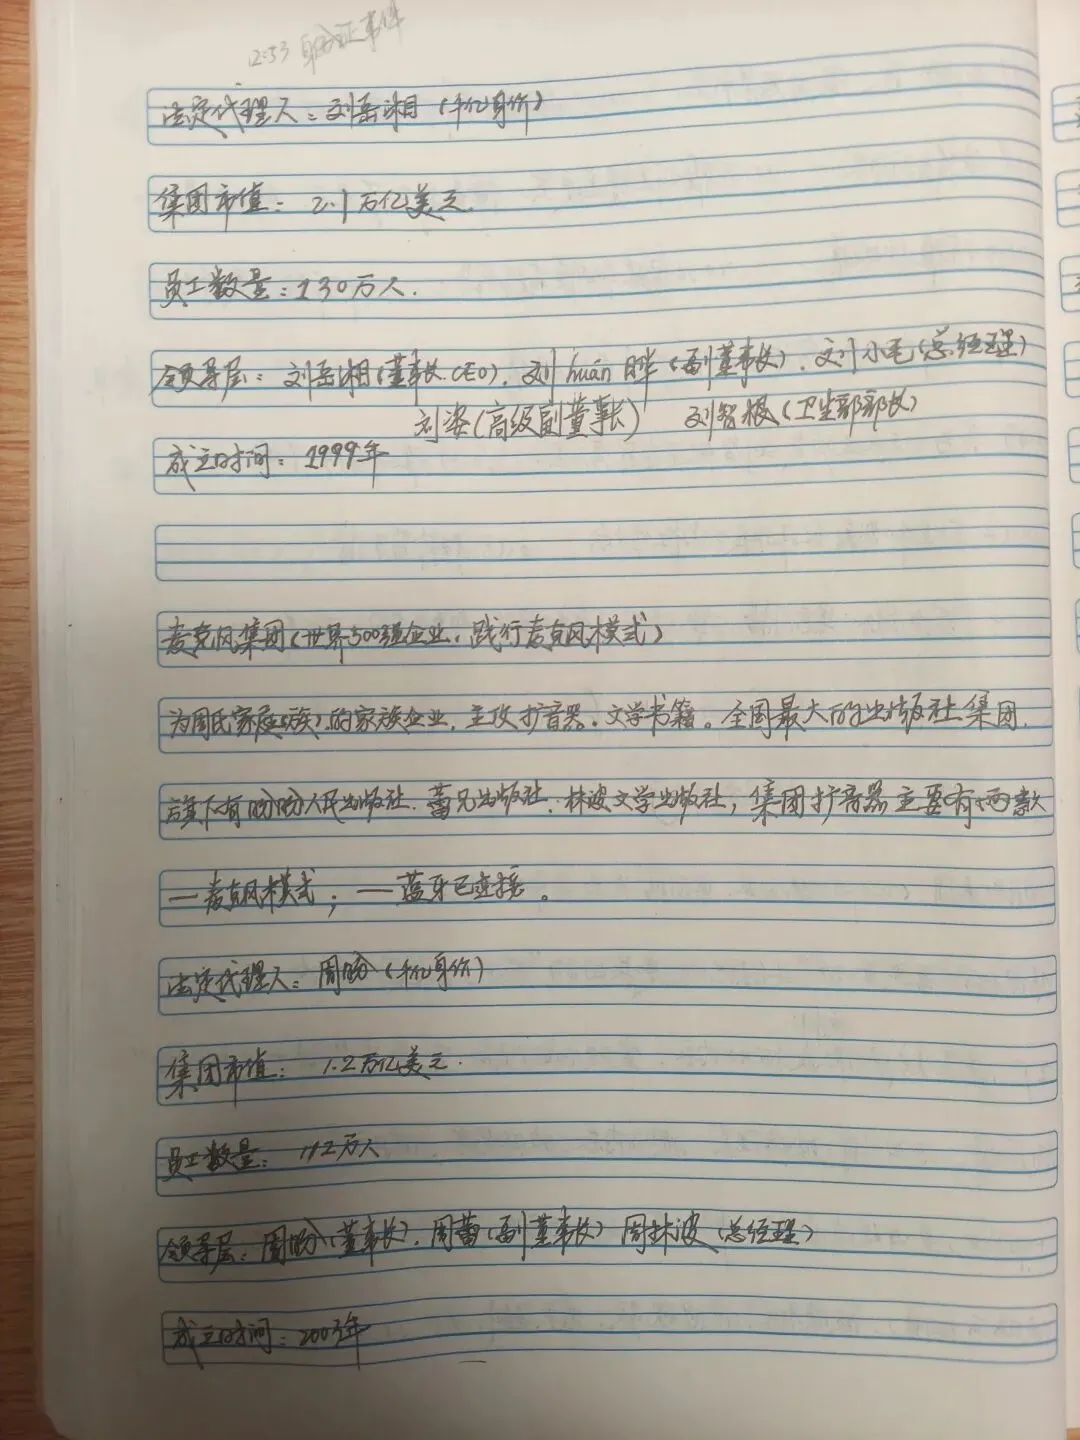 12:53 身份证事件
法定代理人：刘岳湘（千亿身价）
集团市值：2.1万亿美元.
员工数量：130万人.
领导层：刘岳湘（董事长.CEO）.刘huán晔（副董事长）.刘小毛（总经理）
刘姿（高级副董事长） 刘智根（卫生部部长）
成立时间：1999年
麦克风集团（世界500强企业.践行麦克风模式）
为周氏家庭（族）的家族企业.主攻扩音器.文学书籍。全国最大的出版社集团.
旗下有盼盼人民出版社.蕾兄出版社.林波文学出版社，集团扩音器主要有两款
一麦克风模式；一蓝牙已连接。
法定代理人：周盼（千亿身价）
集团市值：1.2万亿美元.
员工数量：112万人
领导层：周盼（董事长）.周蕾（副董事长）周林波（总经理）
成立时间：2003年